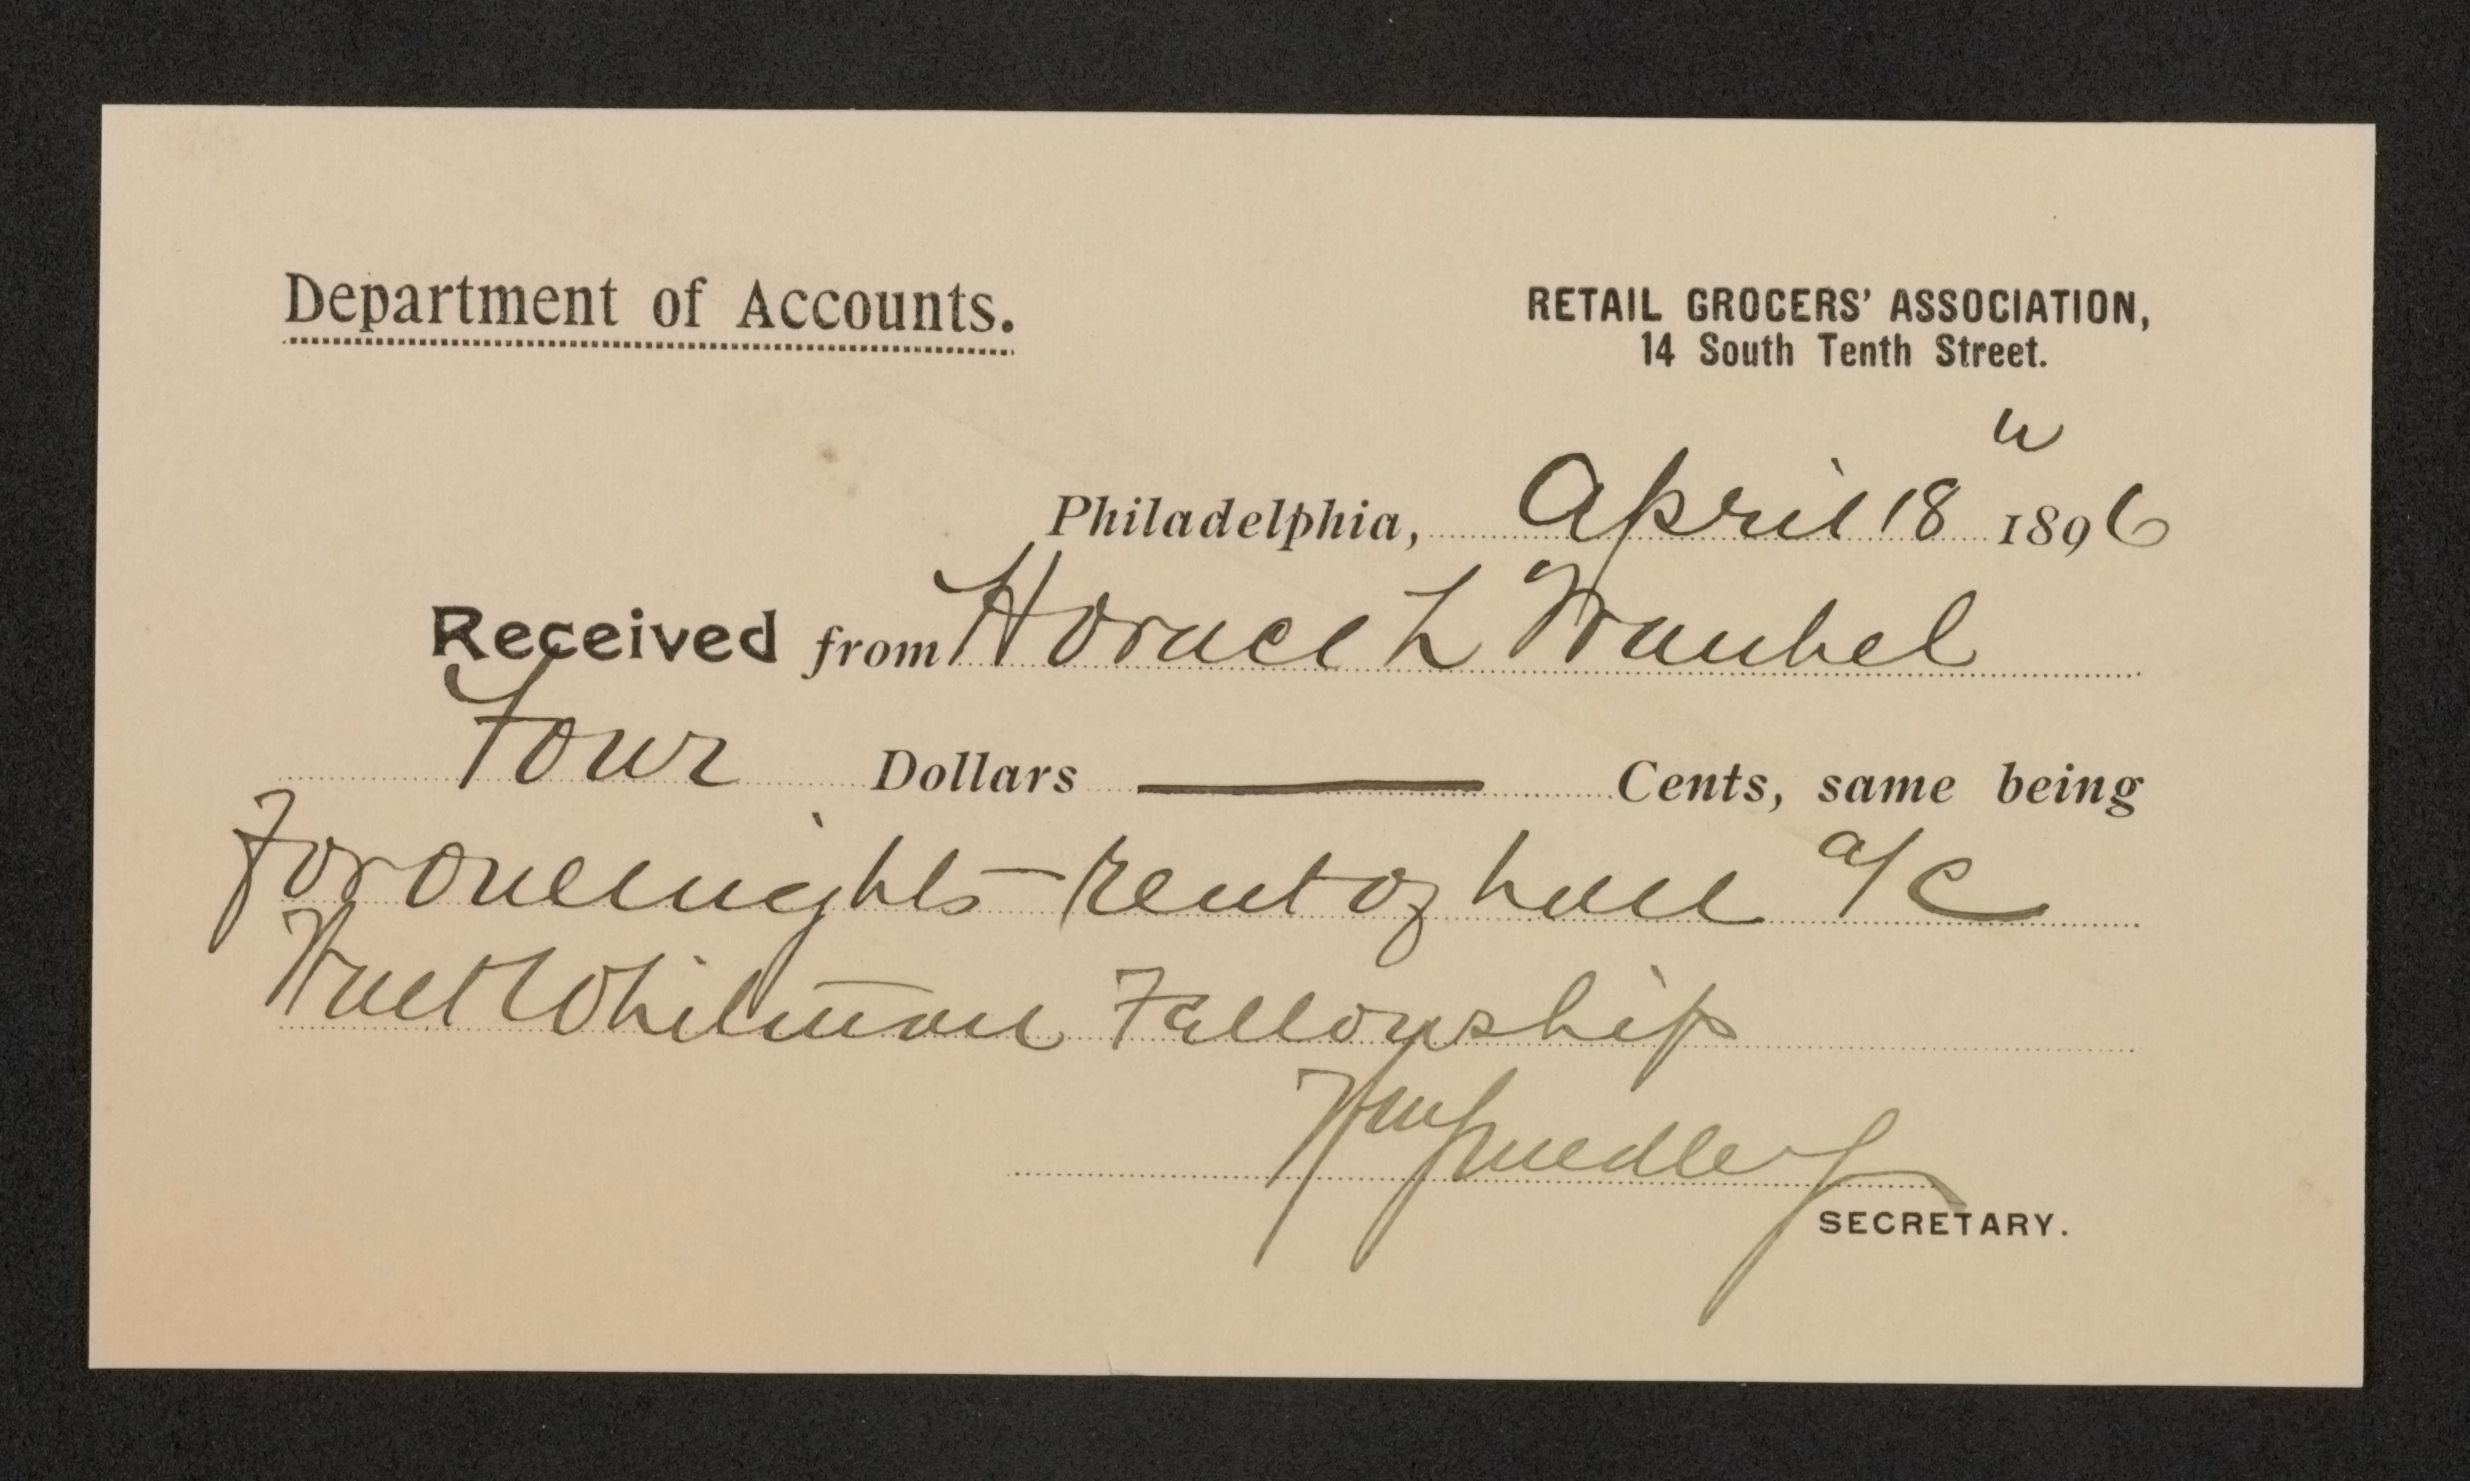 Department of Accounts.
RETAIL GROCERS' ASSOCIATION,
14 South Tenth Street.
Philadelphia, April 18 1896
Received from Horace L Traubel
Four Dollars — Cents, same being
For one nights rent of hall a/c
Walt Whitman Fellowship
Wm Smedley
SECRETARY.